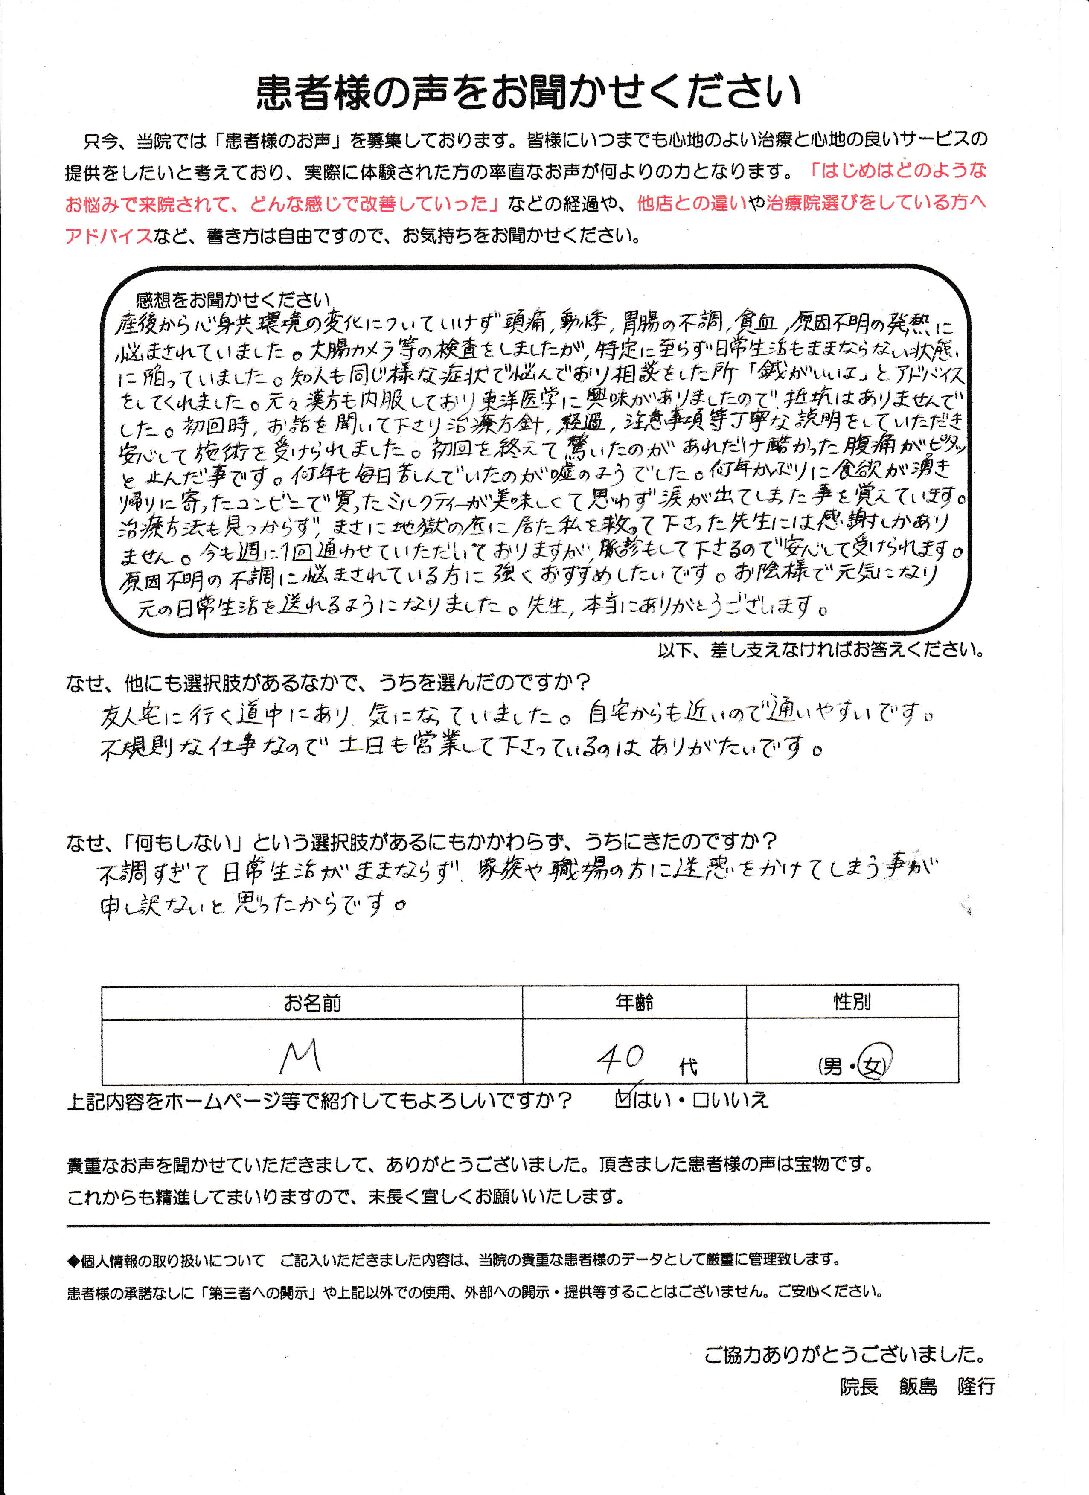 患者様の声をお聞かせください
只今、当院では「患者様のお声」を募集しております。皆様にいつまでも心地のよい治療と心地の良いサービスの
提供をしたいと考えており、実際に体験された方の率直なお声が何よりの力となります。「はじめはどのような
お悩みで来院されて、どんな感じで改善していった」などの経過や、他店との違いや治療院選びをしている方へ
アドバイスなど、書き方は自由ですので、お気持ちをお聞かせください。
感想をお聞かせください
産後から心身共環境の変化についていけず頭痛,動悸,胃腸の不調,貧血,原因不明の発熱に
悩まされていました。大腸カメラ等の検査をしましたが,特定に至らず日常生活もままならない状態
に陥っていました。知人も同じ様な症状で悩んでおり相談をした所「鍼がいいよ」とアドバイス
をしてくれました。元々漢方も内服しており東洋医学に興味がありましたので抵抗はありませんで
した。初回時,お話を聞いて下さり治療方針,経過,注意事項等丁寧な説明をしていただき
安心して施術を受けられました。初回を終えて驚いたのがあれだけ酷かった腹痛がピタッ
と止んだ事です。何年も毎日苦しんでいたのが嘘のようでした。何年かぶりに食欲が湧き
帰りに寄ったコンビニで買ったミルクティーが美味しくて思わず涙が出てしまた事を覚えています。
治療方法も見つからず,まさに地獄の底に居た私を救って下さった先生には感謝しかあり
ません。今も週に1回通わせていただいておりますが,脈診もして下さるので安心して受けられます。
原因不明の不調に悩まされている方に強くおすすめしたいです。お陰様で元気になり
元の日常生活を送れるようになりました。先生,本当にありがとうございます。
以下、差し支えなければお答えください。
なぜ、他にも選択肢があるなかで、うちを選んだのですか？
友人宅に行く道中にあり、気になっていました。自宅からも近いので通いやすいです。
不規則な仕事なので土日も営業して下さっているのはありがたいです。
なぜ、「何もしない」という選択肢があるにもかかわらず、うちにきたのですか？
不調すぎて日常生活がままならず、家族や職場の方に迷惑をかけてしまう事が
申し訳ないと思ったからです。
お名前 年齢 性別
M 40 代 (男・女)
上記内容をホームページ等で紹介してもよろしいですか？ ☑はい・□いいえ
貴重なお声を聞かせていただきまして、ありがとうございました。頂きました患者様の声は宝物です。
これからも精進してまいりますので、末長く宜しくお願いいたします。
◆個人情報の取り扱いについて ご記入いただきました内容は、当院の貴重な患者様のデータとして厳重に管理致します。
患者様の承諾なしに「第三者への開示」や上記以外での使用、外部への開示・提供等することはございません。ご安心ください。
ご協力ありがとうございました。
院長 飯島 隆行